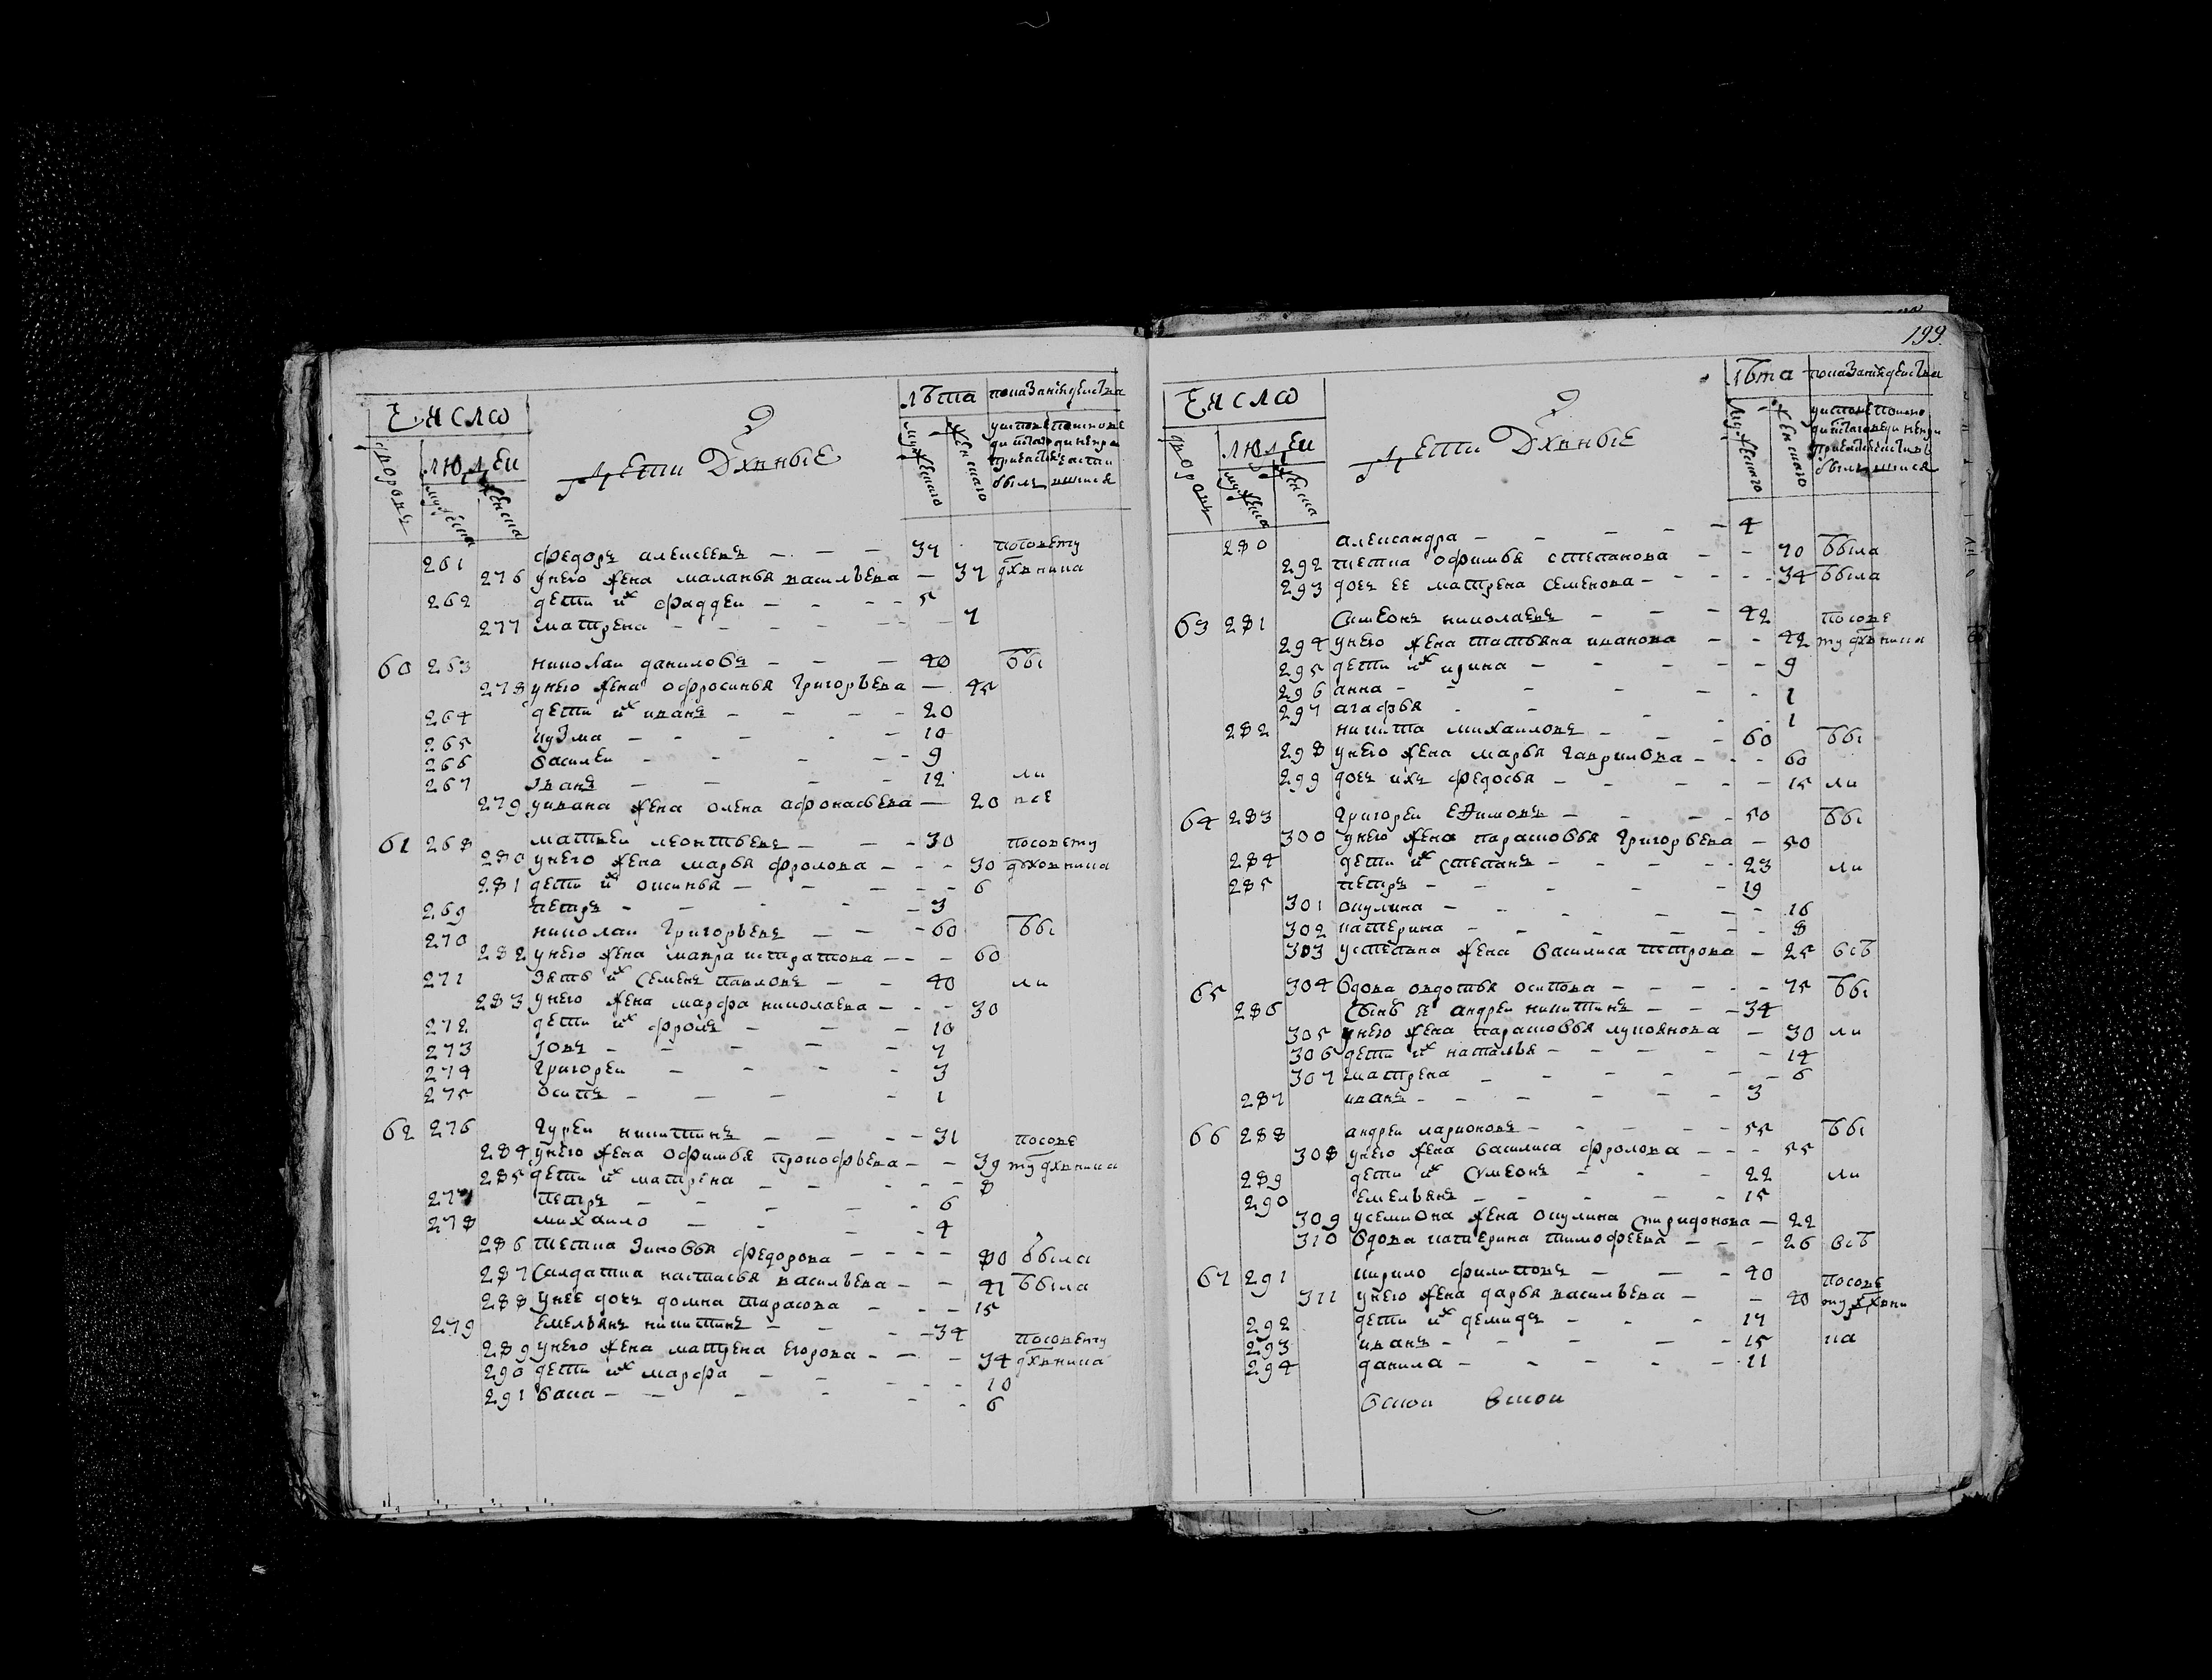 Число
дворовъ
людеи
мужеска
женска
Дети Дхвные
лѣта
мужескаго
женскаго
показанiе деиства
261 федоръ алексеевъ — 37 посовету
276 унего жена маланья васильева — 37 дхвника
262 дети их фаддеи — 5
277 матрена — 7
60 263 николаи даниловъ — 40 бы
278 унего жена офросинья григорьева — 45
264 дети их иванъ — 20
265 кузма — 10
266 василеи — 9
267 Iванъ — 12 ли
279 уивана жена олена афонасьева — 20 все
61 268 матвеи леонтьевъ — 30 посовету
280 унего жена марья фролова — 30 духовника
281 дети их оксинья — 6
269 петръ — 3
270 николаи григорьевъ — 60 бы
282 унего жена мавра истратова — 60
271 зять их семенъ павловъ — 40 ли
283 унего жена марфа николаева — 30
272 дети их фролъ — 10
273 Iовъ — 7
274 григореи — 3
275 осипъ — 1
62 276 гуреи никитинъ — 31 посове
284 унего жена офимья прокофьева — 39 ту дхвника
285 дети их матрена — 8
277 петръ — 6
278 михаило — 4
286 тетка зиновья федорова — 80 была
287 салдатка настасья васильева — 41 была
288 унее дочь домна тарасова — 15
279 емельянъ никитинъ — 34 посовету
289 унего жена матрена егорова — 34 дхвника
290 дети их марфа — 10
291 васа — 6
199
Число
дворовъ
людеи
мужеска
женска
Дети Дхвные
лѣта
мужескаго
женскаго
показанiе деиства
280 александра — 4
292 тетка офимья степанова — 70 была
293 дочь ее матрена семенова — 34 была
63 281 симеонъ николаевъ — 42 посове
294 унего жена татьяна иванова — 42 ту дхвника
295 дети их ирина — 9
296 анна — 1
297 агафья — 1
282 никита михаиловъ — 60 бы
298 унего жена марья гаврилова — 60
299 дочь ихъ федосья — 15 ли
64 283 григореи ефимовъ — 50 бы
300 унего жена парасковья григорьева — 50
284 дети их степанъ — 23 ли
285 петръ — 19
301 окулина — 16
302 катерина — 8
303 устепана жена василиса петрова — 25 всѣ
65 304 вдова овдотья осипова — 75 бы
286 сынъ ее андреи никитинъ — 34
305 унего жена парасковья лукоянова — 30 ли
306 дети их наталья — 14
307 матрена — 6
287 иванъ — 3
66 288 андреи ларионовъ — 55 бы
308 унего жена василиса фролова — 55
289 дети их сумеонъ — 22 ли
290 емельянъ — 15
309 усемиона жена окулина спиридонова — 22
310 вдова катерина тимофеева — 26 всѣ
67 291 кирило филиповъ — 40 посове
311 унего жена дарья васильева — 40 ту дхвни
292 дети их демидъ — 17
293 иванъ — 15 ка
294 данила — 11